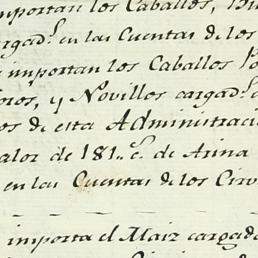 importan los Caballos,
cargad.s en las Cuentas de los
importan los Caballos Po
Toros, y Novillos cargad.s
os de esta Administraci
valor de 181.. @.s de Arina
en las Cuentas de los Cir
importa el Maiz cargad